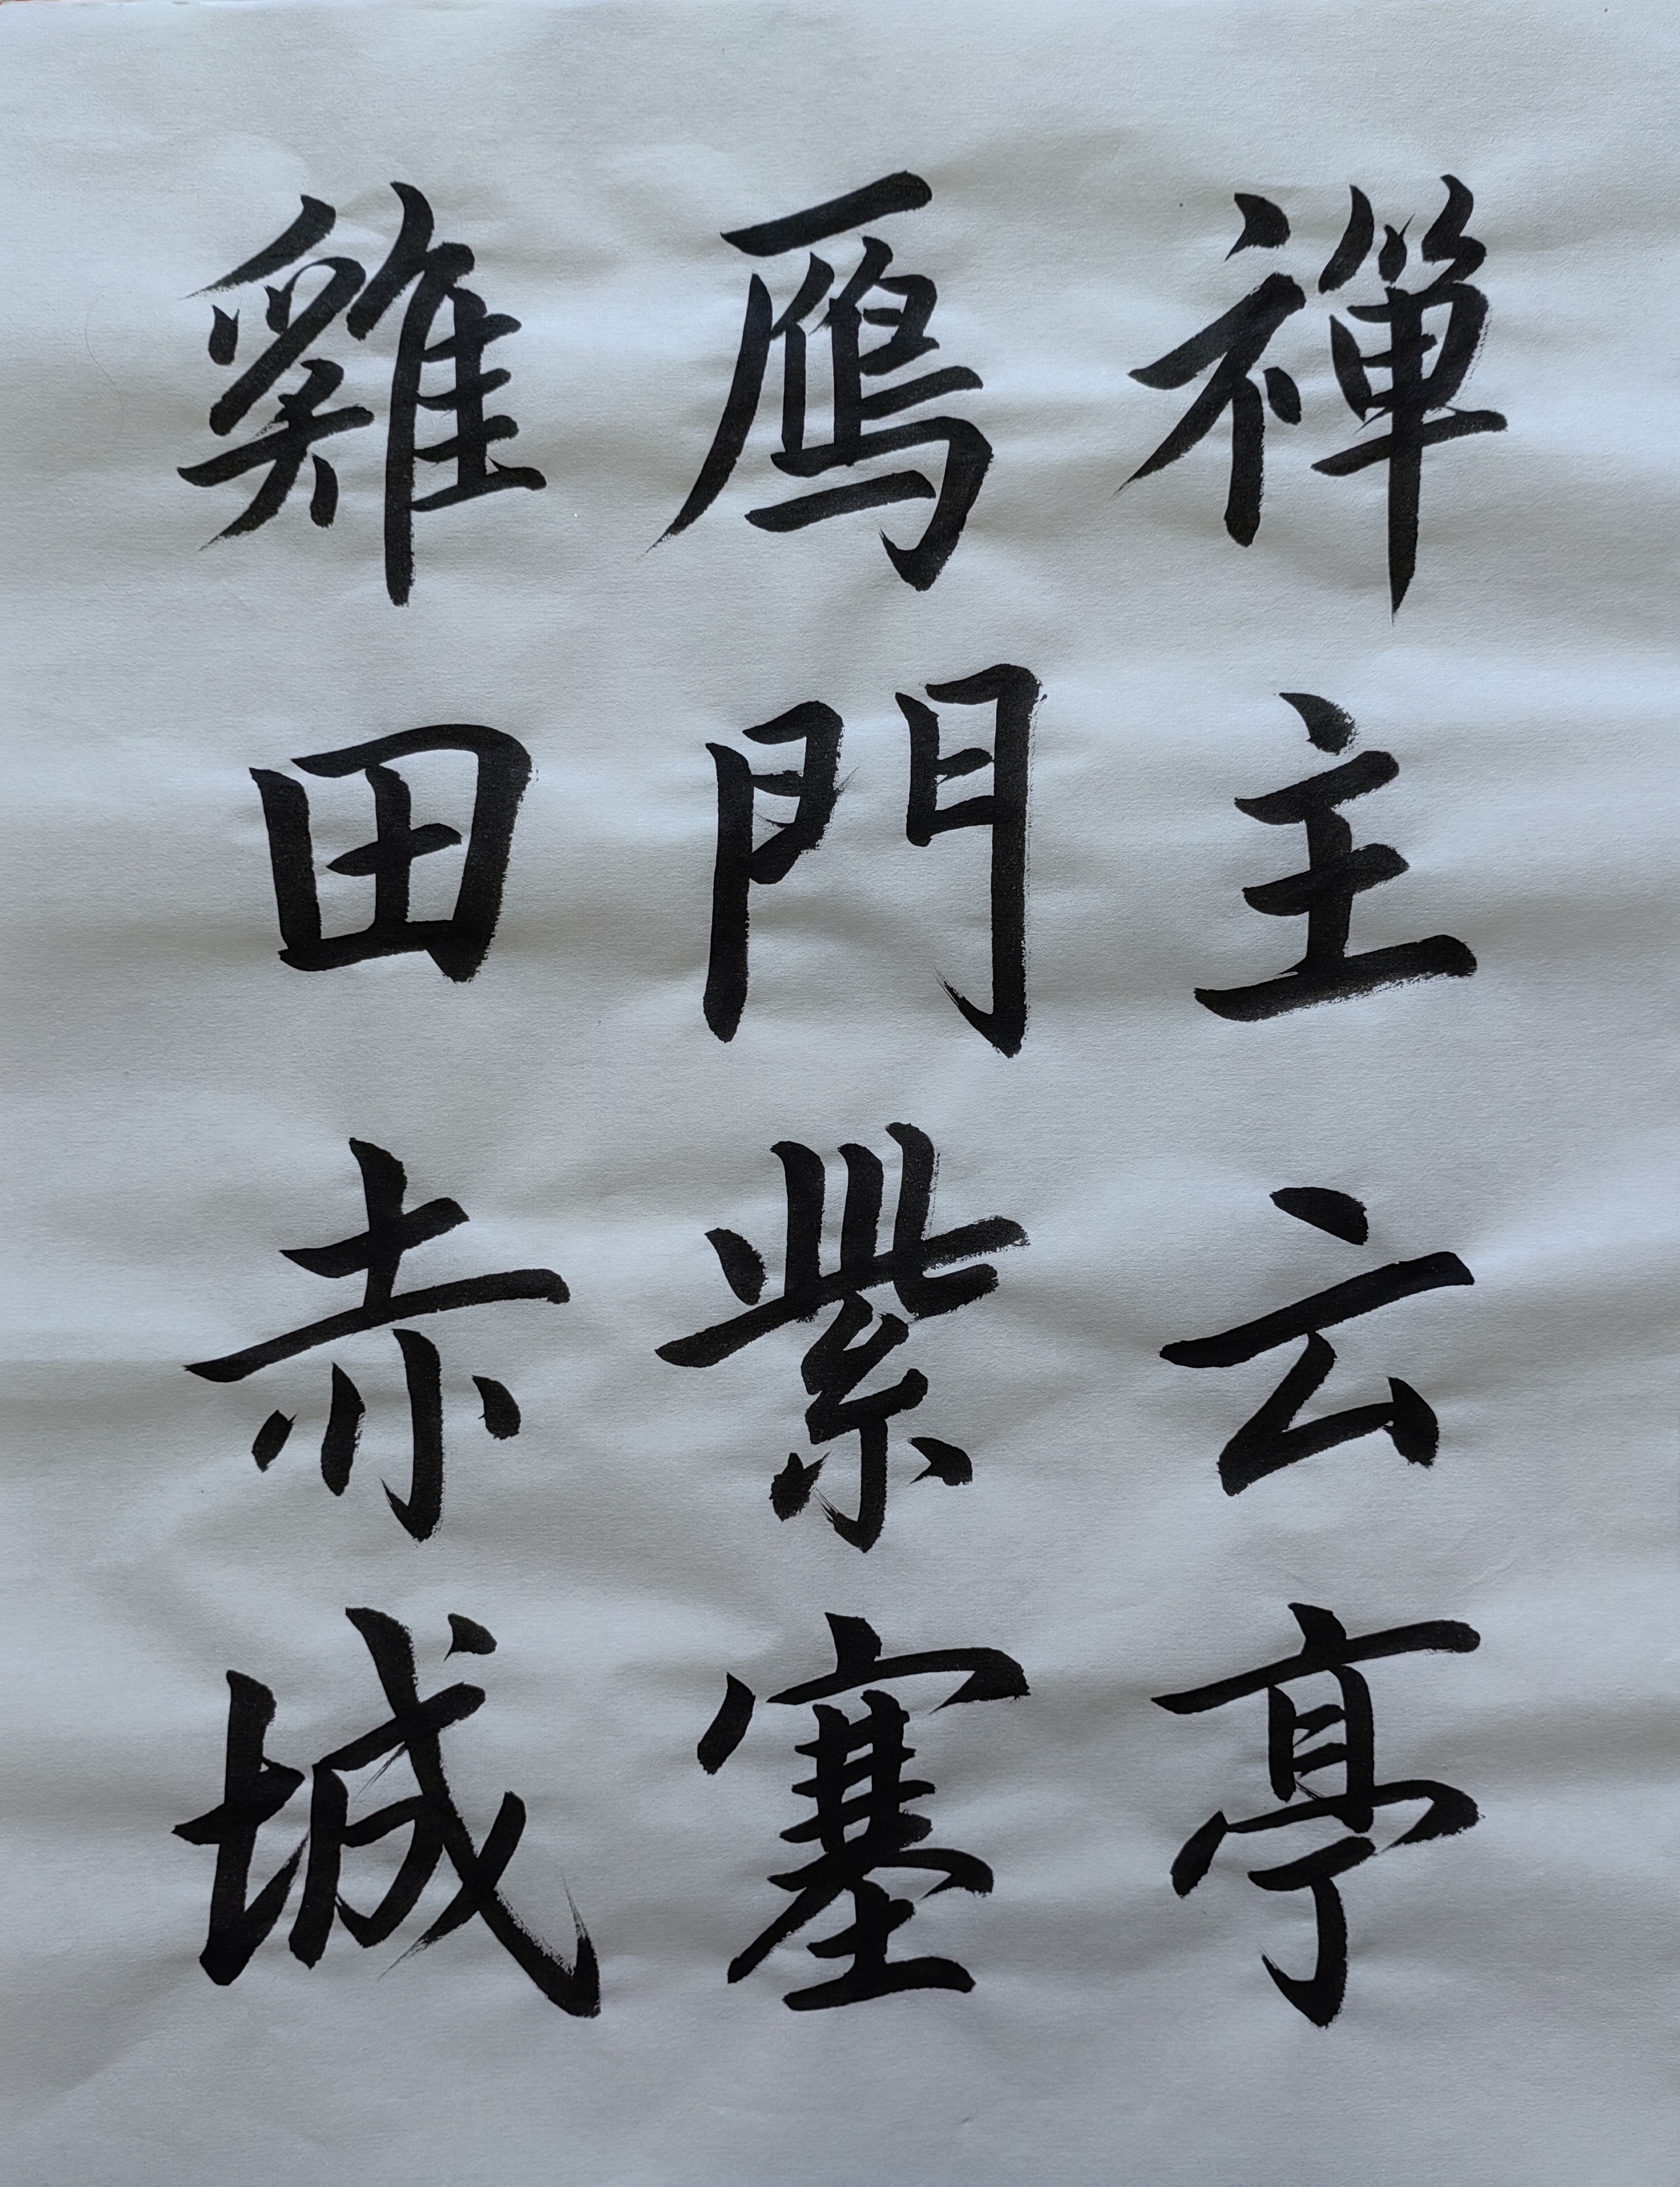 禅主云亭
鴈門紫塞
雞田赤城